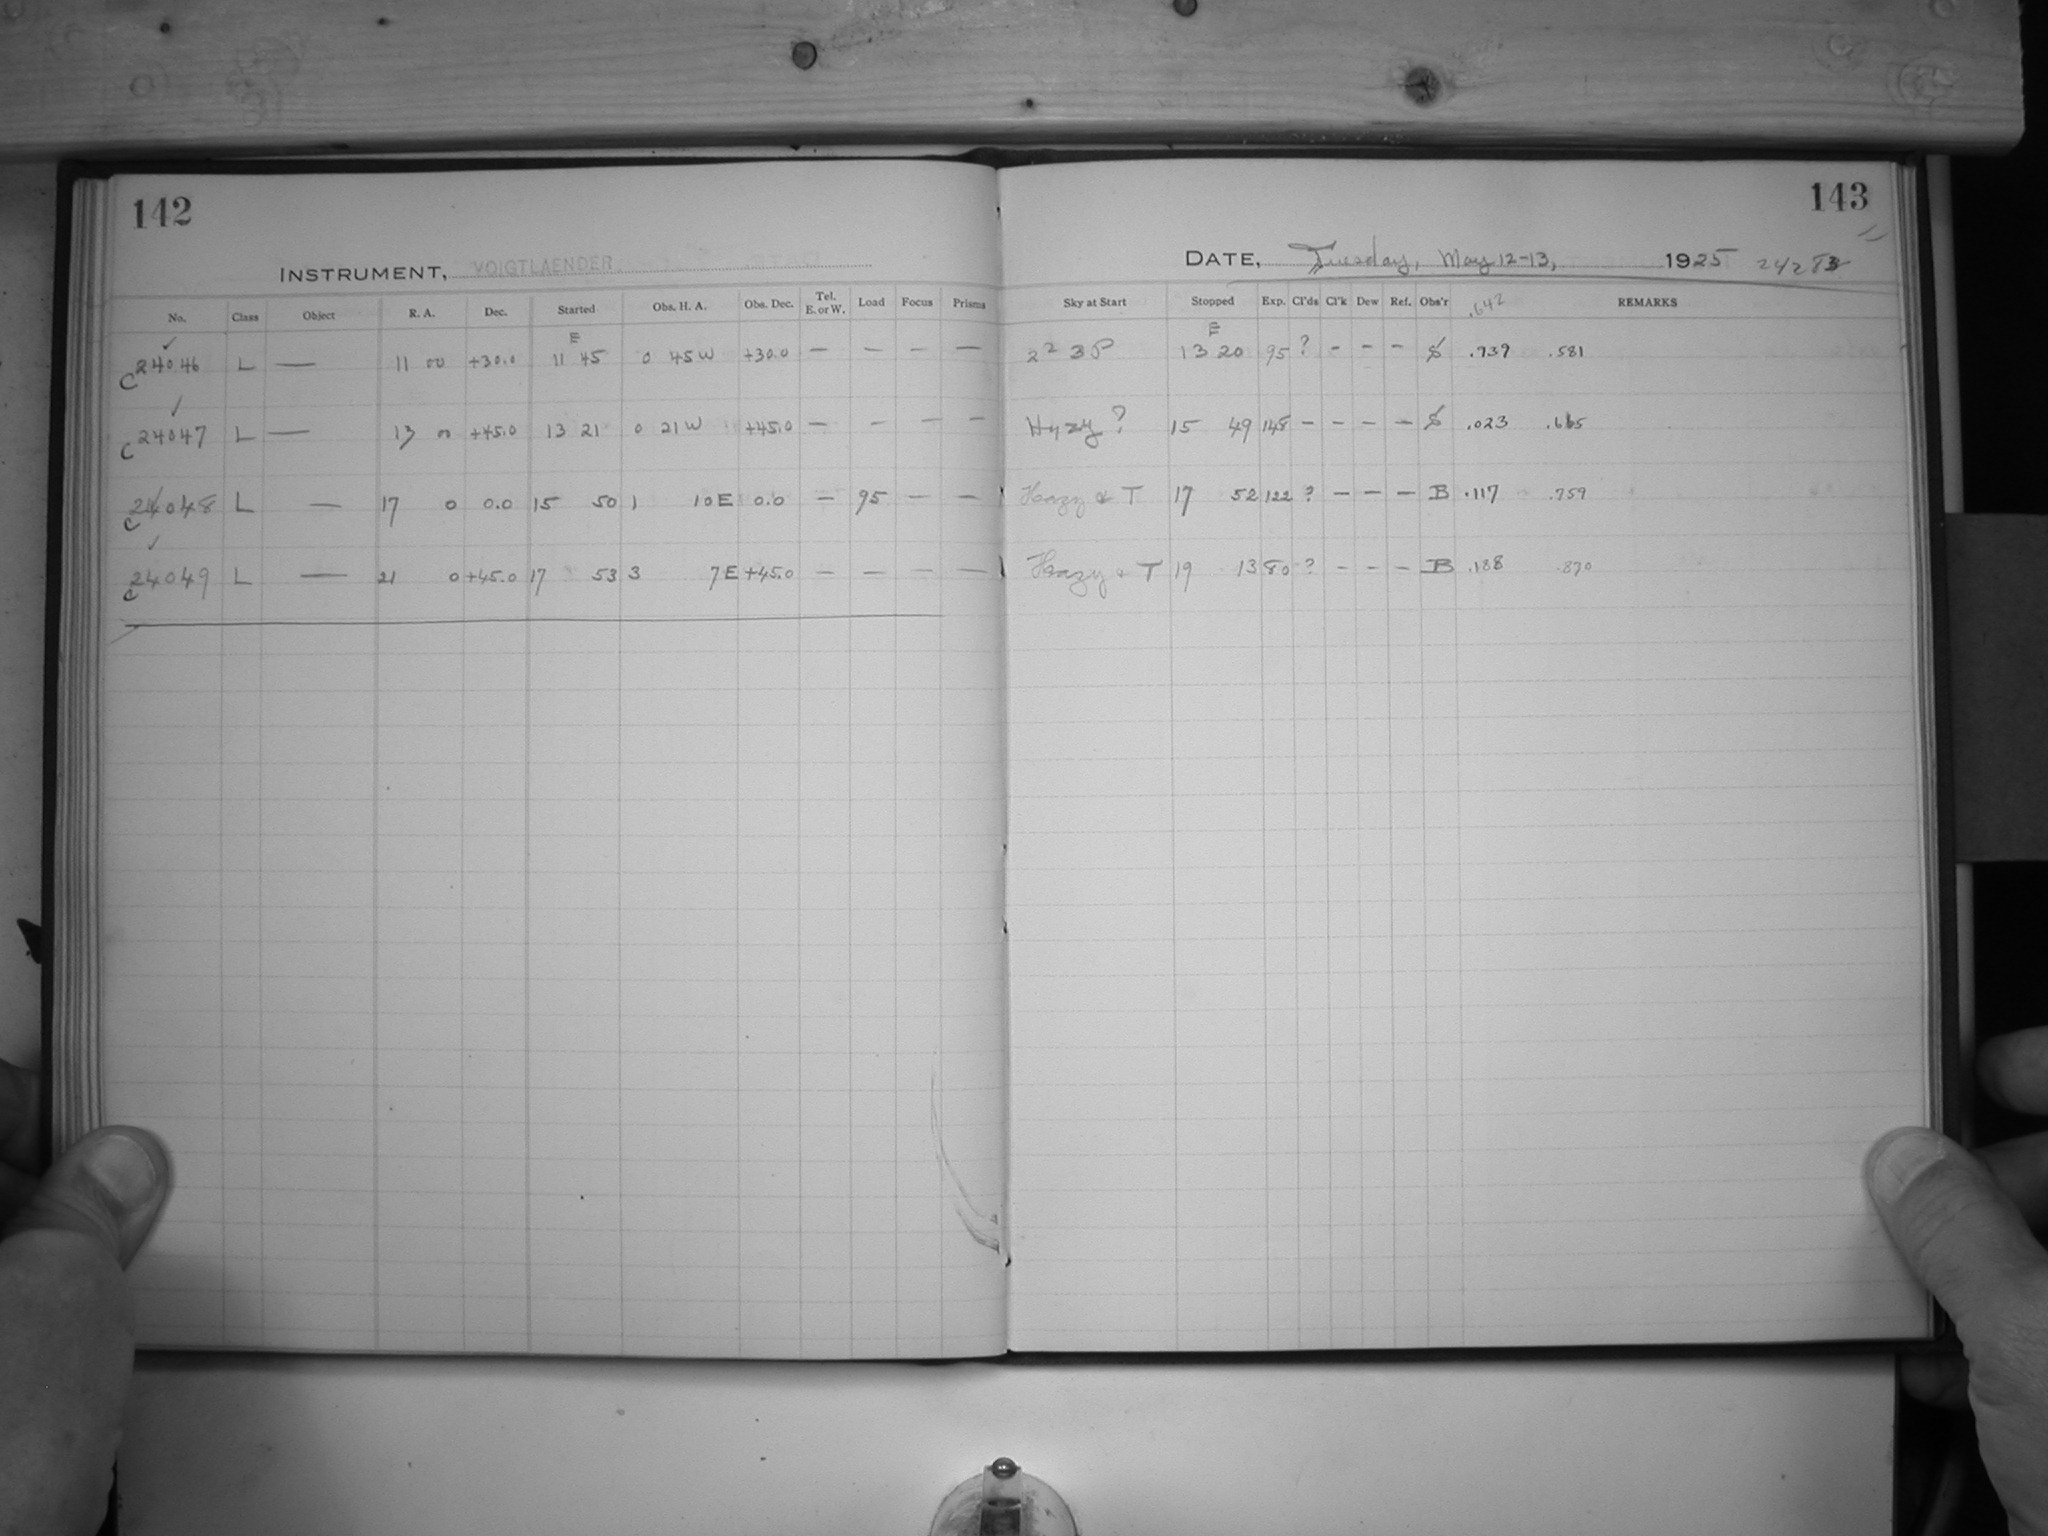 142
143
INSTRUMENT, VOIGTLAENDER
DATE, Tuesday, May 12-13, 1925 242
No. Class Object R. A. Dec. Started Obs. H. A. Obs. Dec. Tel. E. or W. Load Focus Prisms Sky at Start Stopped Exp. Cl'ds Cl'k Dew Ref. Obs'r .642 REMARKS
E E
✓
C 24046 L — 11 00 +30.0 11 45 0 45 W +30.0 — — — — 2 2 3 P 13 20 95 ? - - - S .939 .581
✓
C 24047 L — 13 00 +45.0 13 21 0 21 W +45.0 — — — — Hazy ? 15 49 148 - - - - S .023 .665
C 24048 L — 17 0 0.0 15 50 1 10 E 0.0 — 95 — — Hazy & T 17 52 122 ? - - - B .117 .759
✓
C 24049 L — 21 0 +45.0 17 53 3 7 E +45.0 — — — — Hazy & T 19 13 80 ? - - - B .188 .830